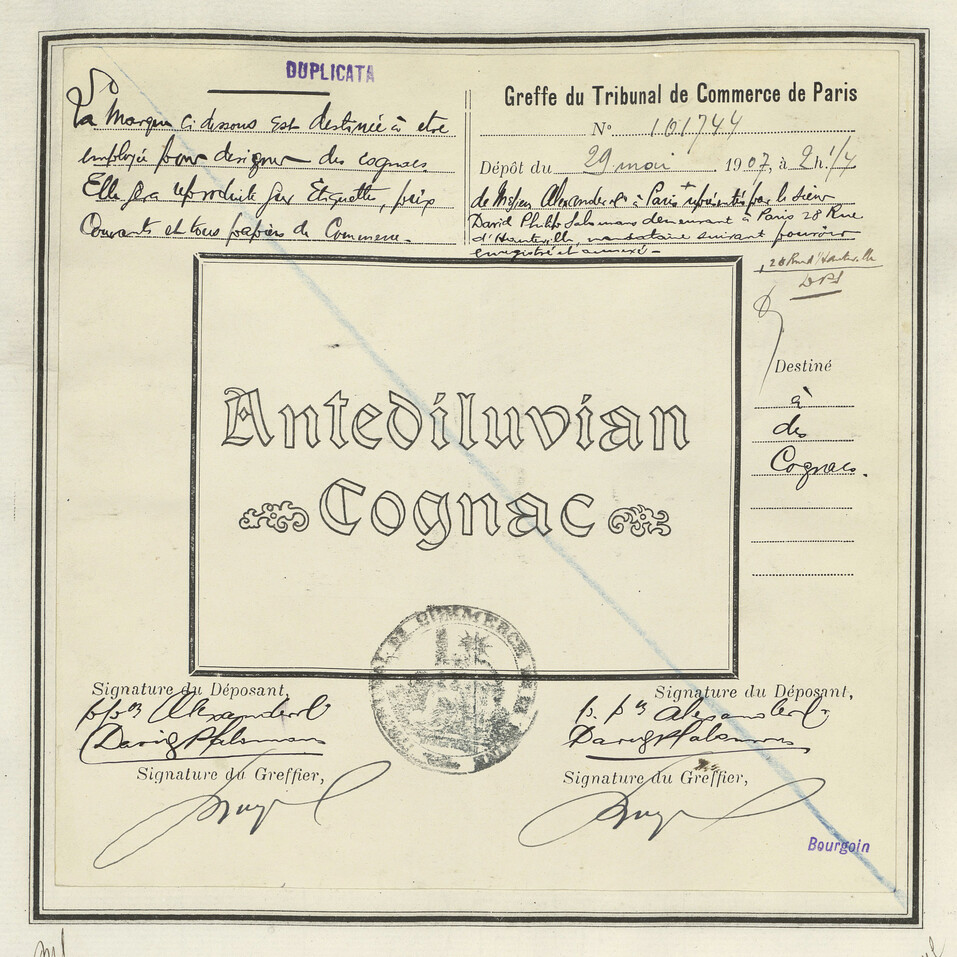 DUPLICATA
La Marque ci dessous est destinée à être
employée pour designer des cognacs.
Elle sera reproduite sur Etiquettes, prix
Courants et tous papiers de Commerce.
Greffe du Tribunal de Commerce de Paris
No 101744
Dépôt du 29 mai 1907, à 2h 1/4
de Alexander à Paris représentés par le sieur
David Philip Salamans demeurant à Paris 28 Rue
d'Hauteville, mandataire suivant pouvoir
enregistré et annexé.
28 Rue d'Hauteville
DPS
Destiné
à
des
Cognacs.
Antediluvian
Cognac
COMMERCE DE
Signature du Déposant,
Signature du Déposant,
Signature du Greffier,
Signature du Greffier,
Bourgoin